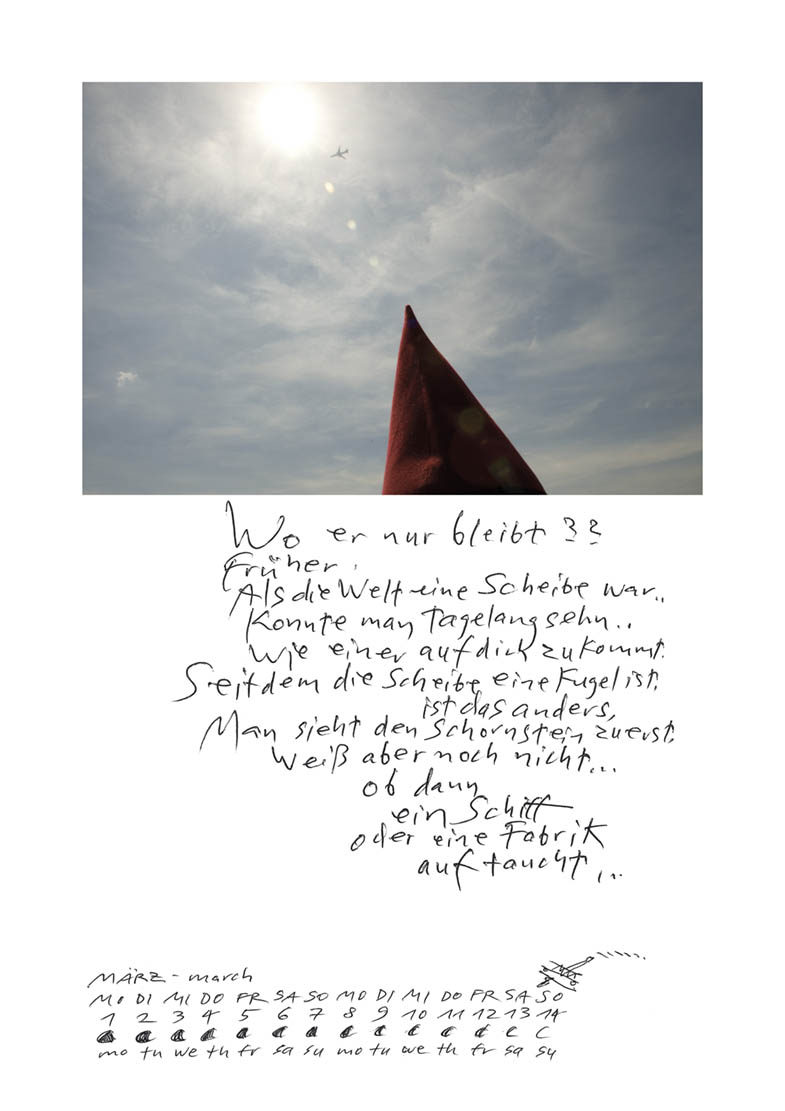 Wo er nur bleibt ??
Früher.
Als die Welt eine Scheibe war..
Konnte man tagelang sehn..
Wie einer auf dich zukommt.
Seitdem die Scheibe eine Kugel ist,
ist das anders,
Man sieht den Schornstein zuerst,
Weiß aber noch nicht...
ob dann
ein Schiff
oder eine Fabrik
auftaucht...
MÄRZ - march
MO DI MI DO FR SA SO MO DI MI DO FR SA SO
1 2 3 4 5 6 7 8 9 10 11 12 13 14
mo tu we th fr sa su mo tu we th fr sa su